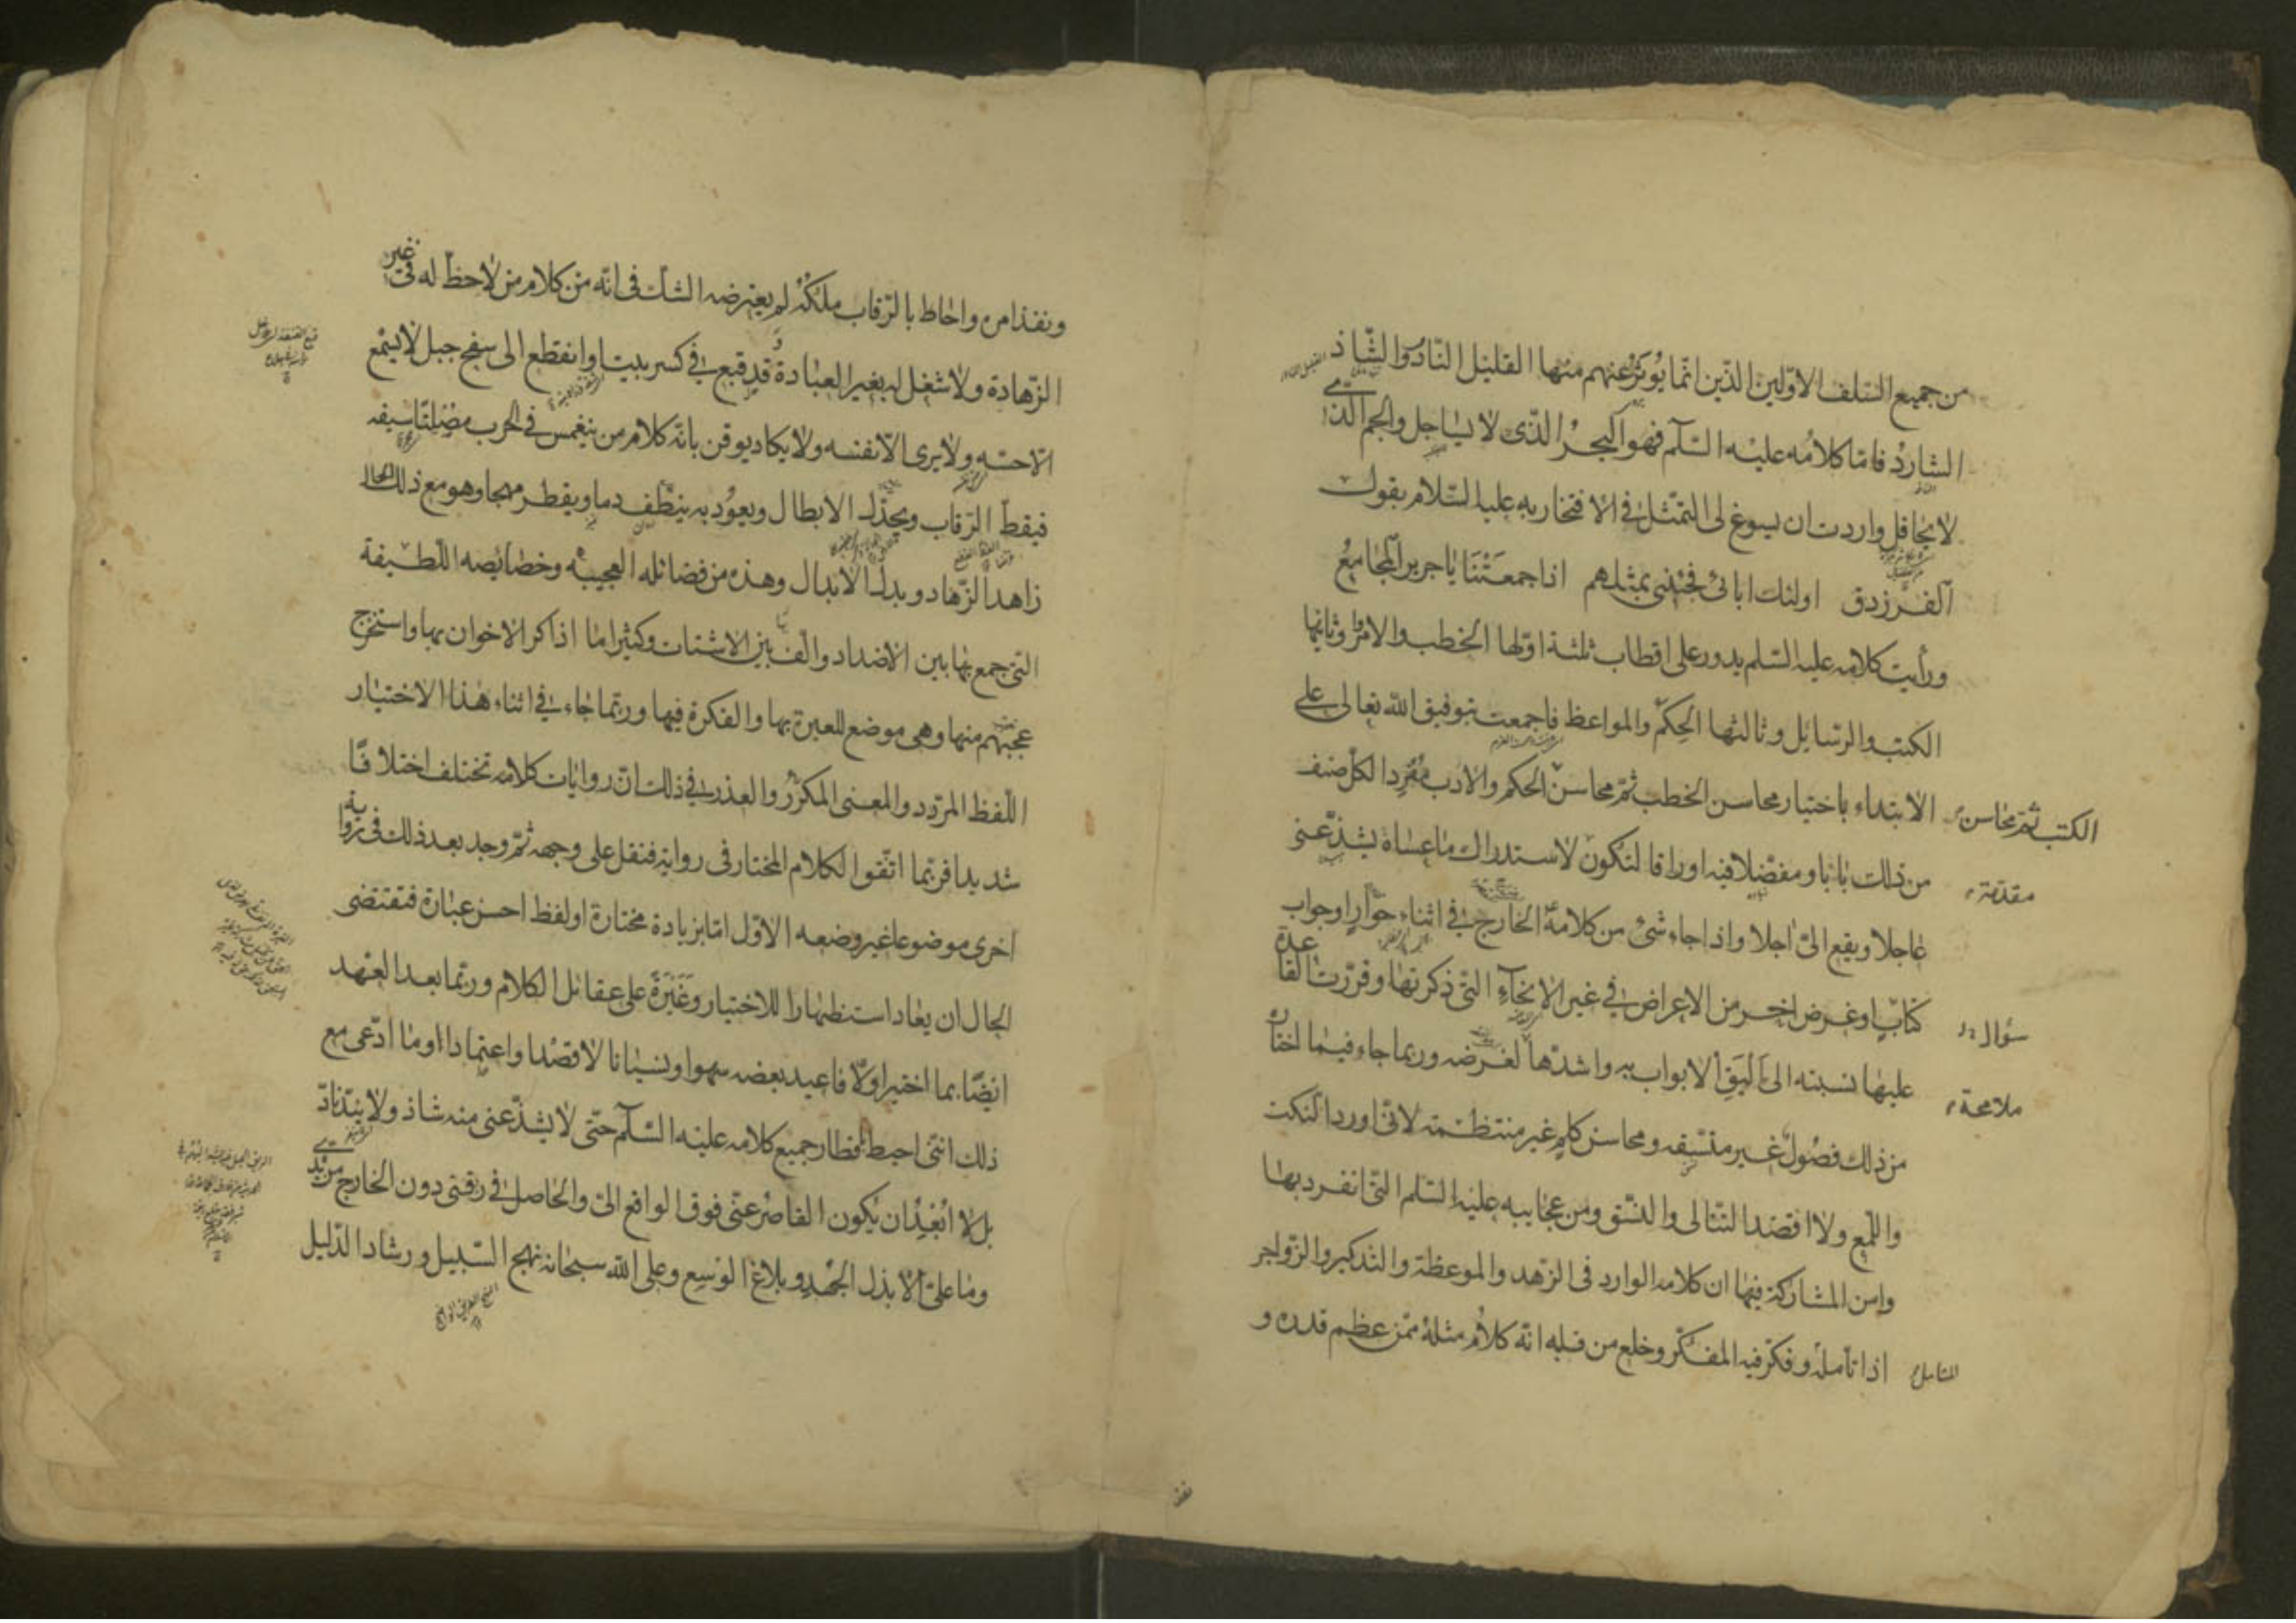 من جميع السّلف الاوّلين الذّين انّما يُوثَرُ عنهم منها القليل النّادر والشّاذ
الشارد فامّا كلامُه عليه السّلم فهو البحرُ الذّى لا يساجل والجم الذى
لا يحافل واردت ان يسوغ لى التمّثل فى الافتخار به عليه السّلام بقول
الفرزدق اولئك ابائى فجئنى بمثلهم اذا جمعتنَا يا جرير المجامعُ
ورأيت كلامه عليه السّلم يدور على اقطاب ثلثة اوّلها الخطب والاوامر وثانيها
الكتب والرسايل وثالثها الحِكم والمواعظ فاجمعت بتوفيق الله تعالى على
الابتداء باختيار محاسن الخطب ثمّ محاسن الحكم والادب مفردا لكلّ صنف
الكتب ثمّ محاسن
من ذلك بابا ومفضّلا فيه اوراقا لتكون لاستدراك ما عساه يشذّ عنى
مقدّمة
عاجلا ويقع الىّ اجلا واذا جاء شئ من كلامه الخارج فى اثناء حوار او جواب
كتاب او غرض اخر من الاغراض فى غير الانحاء التّى ذكرتها وقرّرت القاعدة
سؤال
عليها نسبته الى اليق الابواب به واشدّها لغرضه وربما جاء فيما اختاره
ملامحة
من ذلك فصُول غير متّسقه ومحاسن كلم غير منتظمة لانّى اورد النكت
واللّمع ولا اقصد التتالى والنسّق ومن عجايبه عليه السّلم التّى انفرد بها
وامن المشاركة فيها ان كلامه الوارد فى الزهد والموعظة والتذكير والزّواجر
اذا تامله وفكّر فيه المفكّر وخلع من قلبه انّه كلام مثله ممّن عظم قدره و
المتامل
نفذ
ونفذ امره واحاط بالرّقاب ملكه لم يعترضه الشك فى انّه من كلام من لا حظّ له فى غير
الزّهادة ولا شغل له بغير العبادة قد قبع فى كسر بيت او انقطع الى سفح جبل لا يسمع
الّا حسّه ولا يرى الّا نفسه ولا يكاد يوقن بانّه كلام من ينغمس فى الحرب مصلتا سيفه
فيقطّ الرّقاب ويجدّل الابطال ويعود به ينطف دما ويقطر مهجا وهو مع ذلك الحال
زاهد الزّهاد وبدل الابدال وهذه من فضائله العجيبه وخصائصه اللّطيفة
التّى جمع بها بين الاضداد والّف بين الاشتات وكثيرا ما اذاكر الاخوان بها واستخرج
عجبهم منها وهى موضع للعبرة بها والفكرة فيها وربّما جاء فى اثناء هذا الاختيار
اللّفظ المردّد والمعنى المكرّر والعذر فى ذلك انّ روايات كلامه تختلف اختلافا
شديدا فربّما اتّفق الكلام المختار فى رواية فنقل على وجهه ثمّ وجد بعد ذلك فى رواية
اخرى موضوعا غير وضعه الاوّل امّا بزيادة مختارة او لفظ احسن عبارة فتقتضى
الحال ان يعاد استظهارا للاختيار وغَيرَةً على عقائل الكلام وربّما بعد العهد
ايضًا بما اختير اوّلا فاعيد بعضه سهوا ونسيانا لا قصدا واعتمادا او ما ادّعى مع
ذلك انّنى احيط باقطار جميع كلامه عليه السّلم حتّى لا يشذّ عنى منه شاذ ولا يندّ نادّ
بل لا ابعد ان يكون القاصر عنّى فوق الواقع الىّ والحاصل فى ربقتى دون الخارج من يدى
وما علىّ الّا بذل الجهد وبلاغ الوسع وعلى الله سبحانه نهج السّبيل ورشاد الدّليل